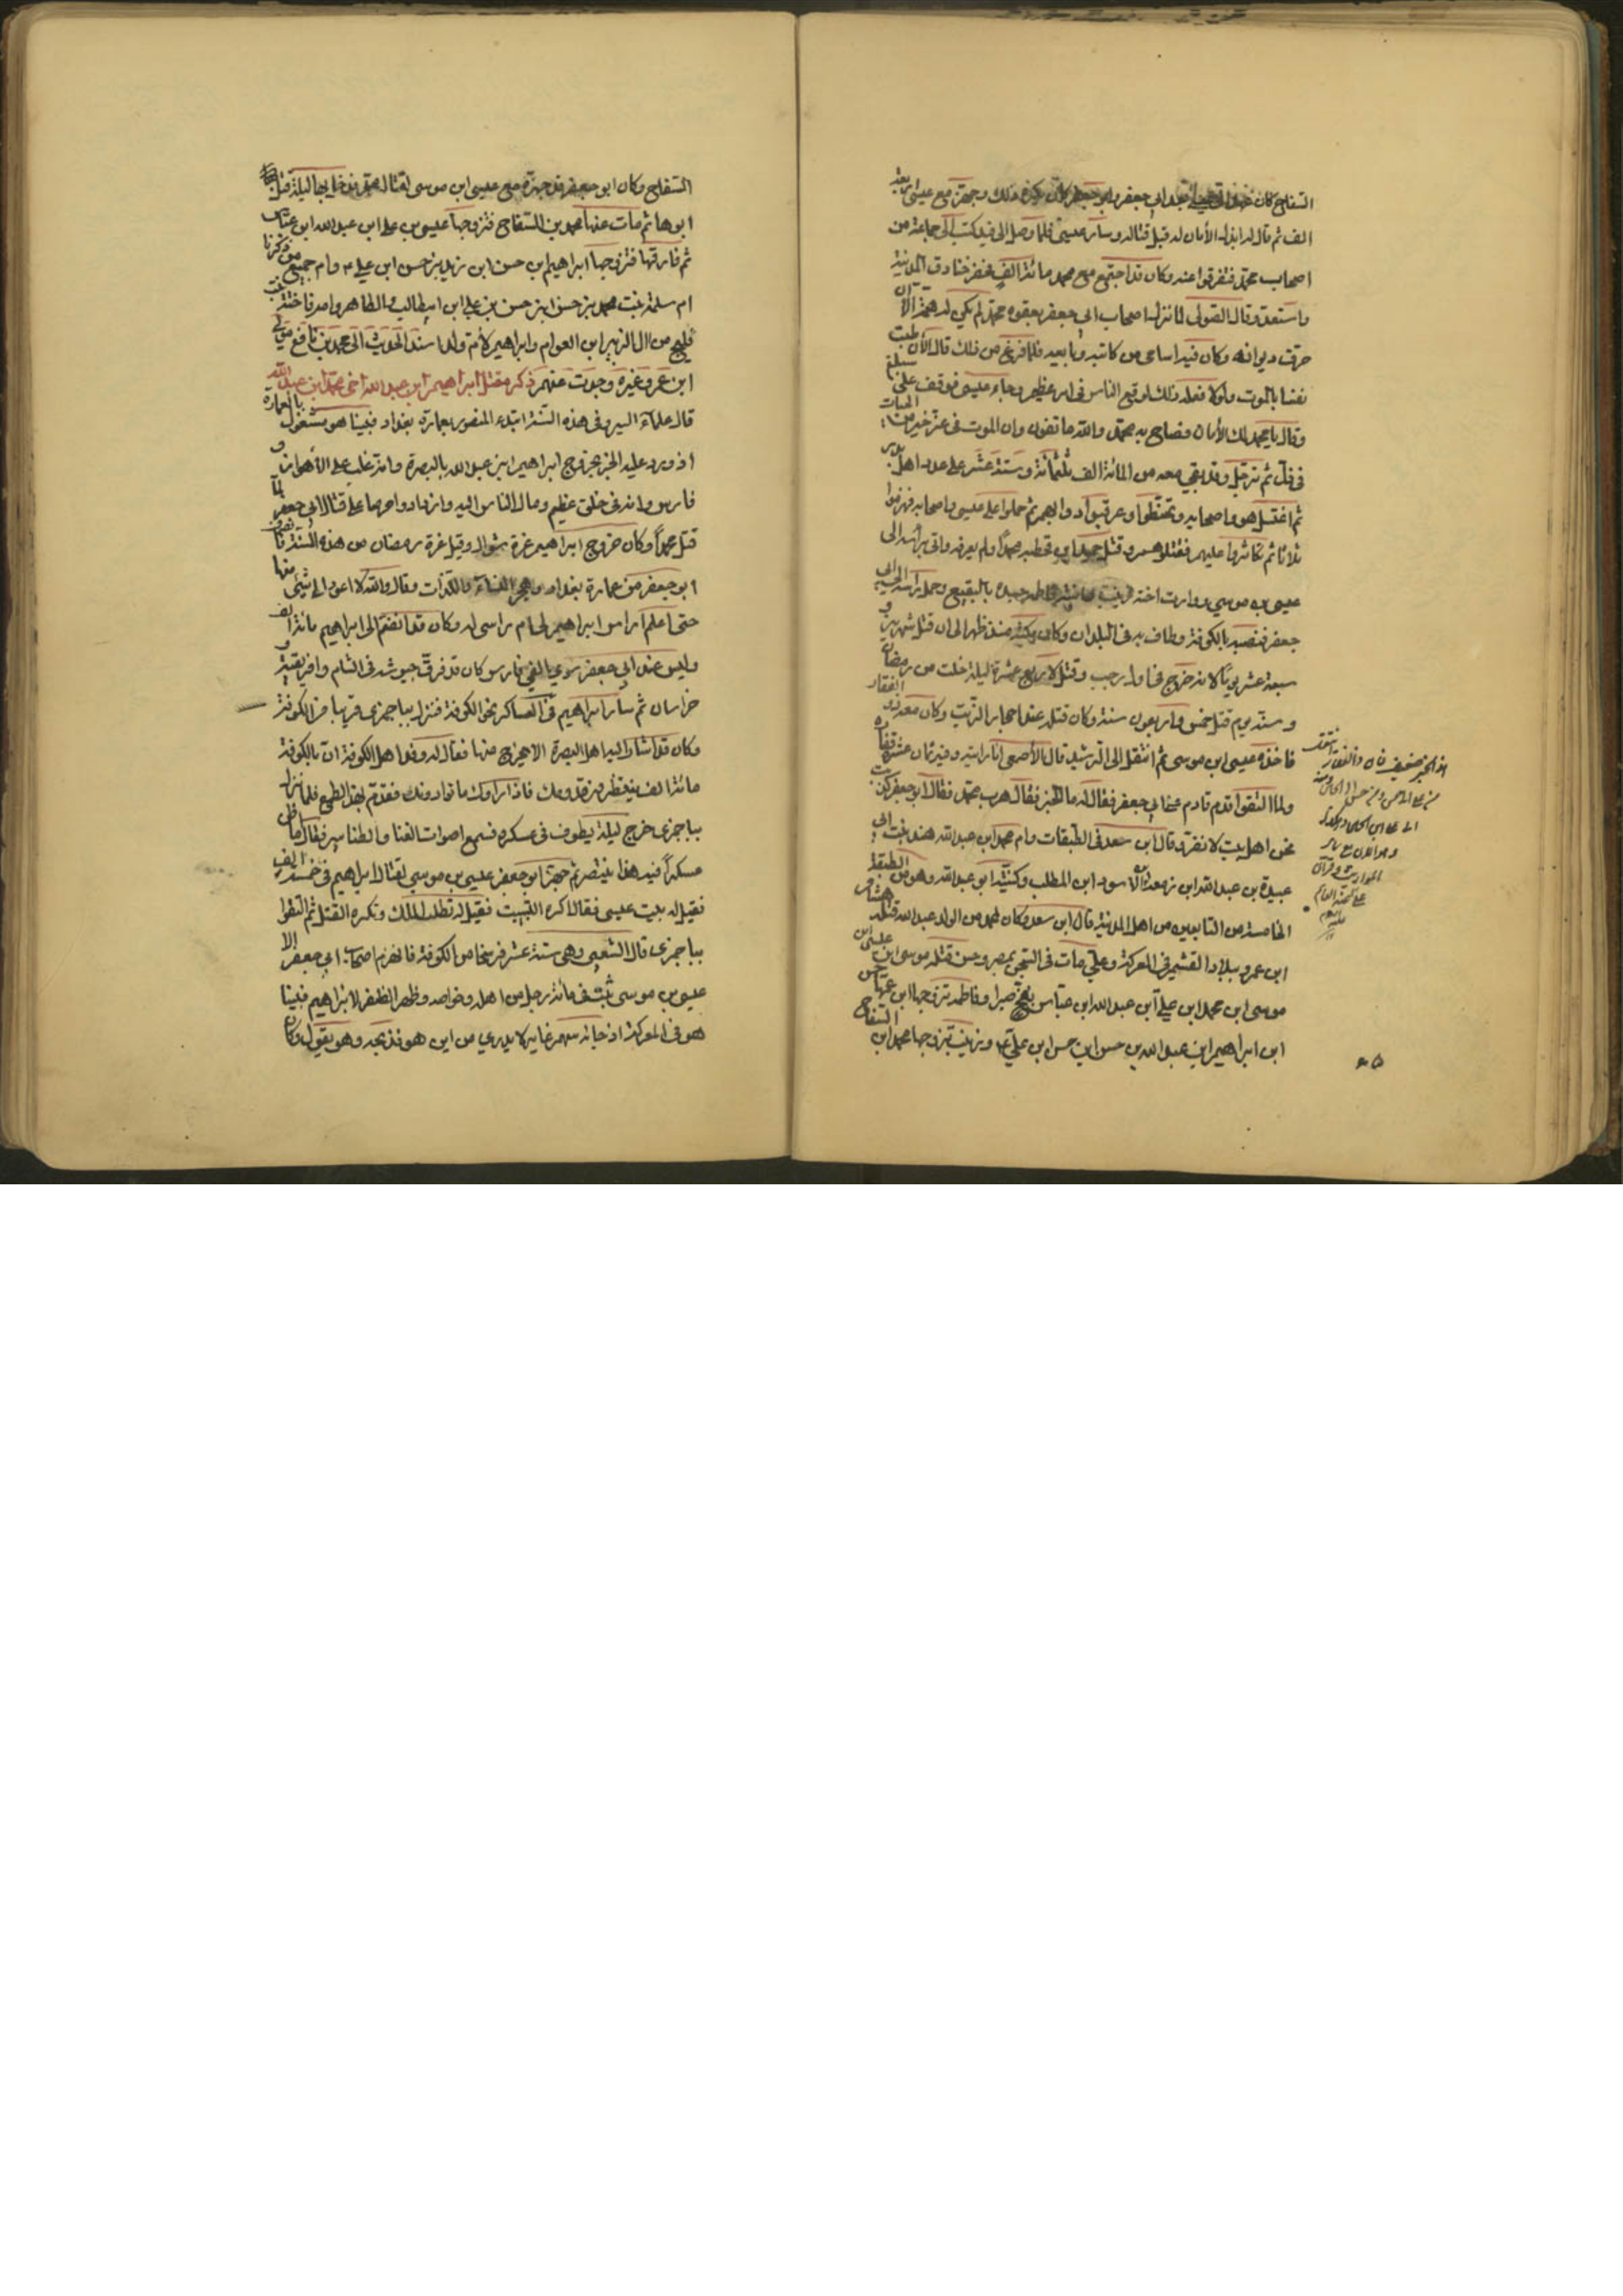 السفاح كان ابى جعفر وابو جعفر يكره ذلك وجهز مع عيسى اربعة
الف ثم قال له ابذل الأمان له قبل قتاله وسار عيسى فلما وصل الى فيد كتب الى جماعة من
اصحاب محمد فتفرقوا عنه وكان قد اجتمع مع محمد مائة الف فحفر خنادق المدينة
واستعد وقال الصولى لما نزل اصحاب ابى جعفر بعقوه محمد لم يكن له همة الا ان
حرق ديوانه وكان فيه اسامى من كاتبه وبايعه فلما فرغ من ذلك قال الآن طبت
نفسا بالموت ولولا فعله ذلك لوقع الناس فى امر عظيم وجاء عيسى فوقف على سلع
وقال يا محمد لك الأمان فصاح به محمد والله ما تفون وان الموت فى عز خير من الحيات
فى ذل ثم ترجل وقد بقى معه من المائة الف ثلثمائة وستة عشر على عدد اهل بدر
ثم اغتسل هو واصحابه وتحنطوا وعرقبوا دوابهم ثم حملوا على عيسى واصحابه فهزموا
ثلاثا ثم تكاثروا عليهم فقتلوهم وقتل حميد ابن قحطبه محمدا ولم يعرفه واتى براسه الى
عيسى بن موسى ووارت اخته زينب وابنته فاطمة جسده بالبقيع وحمل راسه الى ابى
جعفر فنصبه بالكوفة وطاف به فى البلدان وكان مكثه منذ ظهر الى ان قتل شهرين و
سبعة عشر يوما لانه خرج فى اول رجب وقتل لاربع عشرة ليلة خلت من رمضان
وسنه يوم قتل خمس واربعون سنة وكان قتله عند احجار الزيت وكان معه ذو الفقار
فاخذه عيسى ابن موسى ثم انتقل الى الرشيد قال الأصمعى انا رايته وفيه ثمان عشرة فقارة
ولما التقوا قدم قادم على ابى جعفر فقال له ما الخبر فقال هرب محمد فقال ابو جعفر كذبت
نحن اهل بيت لا نفر قال ابن سعد فى الطبقات وام محمد ابن عبد الله هند بنت ابى
عبيدة بن عبد الله ابن زمعة ابن الأسود ابن المطلب وكنيته ابو عبد الله وهو من الطبقة
الخامسة من التابعين من اهل المدينة قال ابن سعد وكان لمحمد من الولد عبد الله قتله هشام
ابن عمرو ببلاد القشمير فى المعركة وعلى مات فى السجن بمصر وحسن قتله موسى ابن عيسى ابن
موسى ابن محمد ابن على ابن عبد الله ابن عباس بفخ صبرا وفاطمة تزوجها ابن عمها حسن
ابن ابراهيم ابن عبد الله بن حسن ابن حسن ابن على ع وزينب تزوجها محمد ابن السفاح
السفاح وكان ابو جعفر قد جهزه مع عيسى ابن موسى لقتال محمد فدخل بها ليلة قتل
ابوها ثم مات عنها محمد بن السفاح فتزوجها عيسى بن على ابن عبد الله ابن عباس
ثم فارقها فتزوجها ابراهيم ابن حسن ابن زيد بن حسن ابن على ع وام جميع من ذكرنا
ام سلمة بنت محمد بن حسن ابن حسن بن على ابن ابيطالب والطاهر وامه فاختة بنت
فليح من ال الزبير ابن العوام وابراهيم لأم ولد اسند الحديث الى محمد بن نافع مولى
ابن عمر وغيره وحدث عنهم ذكر مقتل ابراهيم ابن عبد الله اخى محمد ابن عبد الله
قال علماء السير وفى هذه السنة ابتدء المنصور بعمارة بغداد فبينا هو مشغول بالعمارة
اذ ورد عليه الخبر بخروج ابراهيم ابن عبد الله بالبصرة وانه غلب على الأهواز و
فارس وانه فى خلق عظيم ومال الناس اليه وازدادوا حرصا على قتال ابى جعفر لما
قتل محمدا وكان خروج ابراهيم غرة شوال وقيل غرة رمضان من هذه السنة فانصرف
ابو جعفر من عمارة بغداد وهجر النساء واللذات وقال والله لا اعود الى شئ منها
حتى اعلم اراس ابراهيم لى ام راسى له وكان قد انضم الى ابراهيم مائة الف
وليس عند ابى جعفر سوى الفى فارس وكان قد فرق جيوشه فى الشام وافريقية و
خراسان ثم سار ابراهيم فى العساكر نحو الكوفة فنزل بباجمرى قريبا من الكوفة
وكان قد اشار اليه اهل البصرة الا يخرج منها فقال له وفد اهل الكوفة ان بالكوفة
مائة الف ينتظرون قدومك فاذا راوك ما توا دونك فتقدم لهذا الطمع فلما نزل
بباجمرى خرج ليلة يطوف فى عسكره فسمع اصوات الغنا والطنابير فقال ما اظن
عسكرا فيه هذا ينتصر ثم جهز ابو جعفر عيسى بن موسى لقتال ابراهيم فى خمسة الف
فقيل له بيت عيسى فقال اكره التبييت فقيل له تطلب الملك وتكره القتل ثم التقوا
بباجمرى قال الشعبى وهى ستة عشر فرسخا من الكوفة فانهزم اصحاب ابى جعفر الا
عيسى بن موسى ثبت فى مائة رجل من اهله وخواصه وظهر الظفر لابراهيم فبينا
هو فى المعركة اذ جائه سهم غاير لا يدرى من اين هو فذبحه وهو يقول وكان